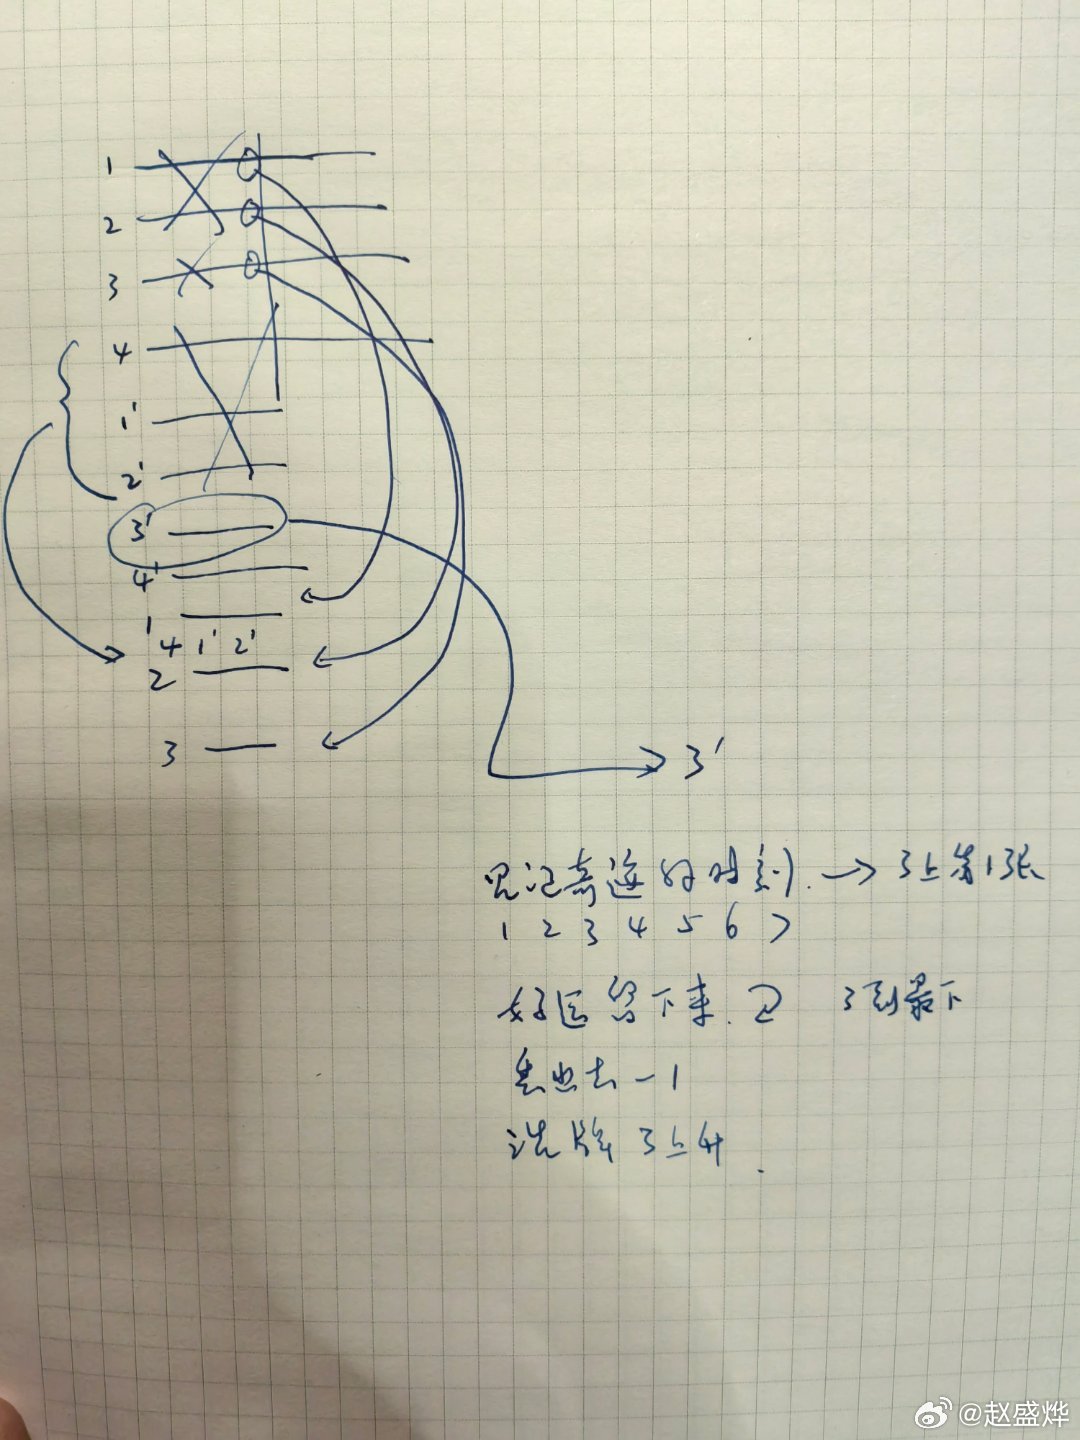 1
2
3
4
1'
2'
3'
4'
1
4 1' 2'
2
3
3'
见证奇迹的时刻. → 3上第1张
1 2 3 4 5 6 7
好运留下来. 3到最下
丢出去 -1
洗牌 3上升.
@赵盛烨